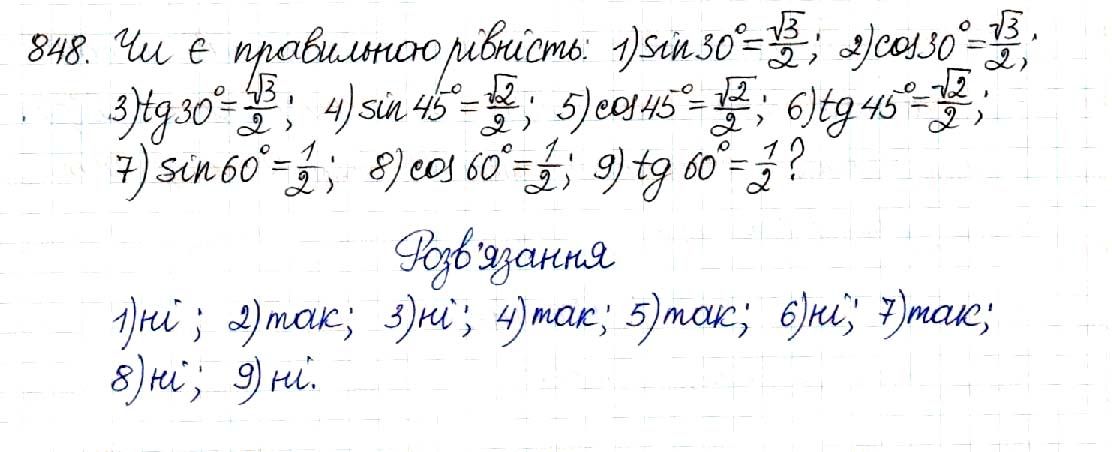 848. Чи є правильною рівність: 1) sin 30° = √3/2; 2) cos 30° = √3/2;
3) tg 30° = √3/2; 4) sin 45° = √2/2; 5) cos 45° = √2/2; 6) tg 45° = √2/2;
7) sin 60° = 1/2; 8) cos 60° = 1/2; 9) tg 60° = 1/2?
Розв'язання
1) ні; 2) так; 3) ні; 4) так; 5) так; 6) ні; 7) так;
8) ні; 9) ні.